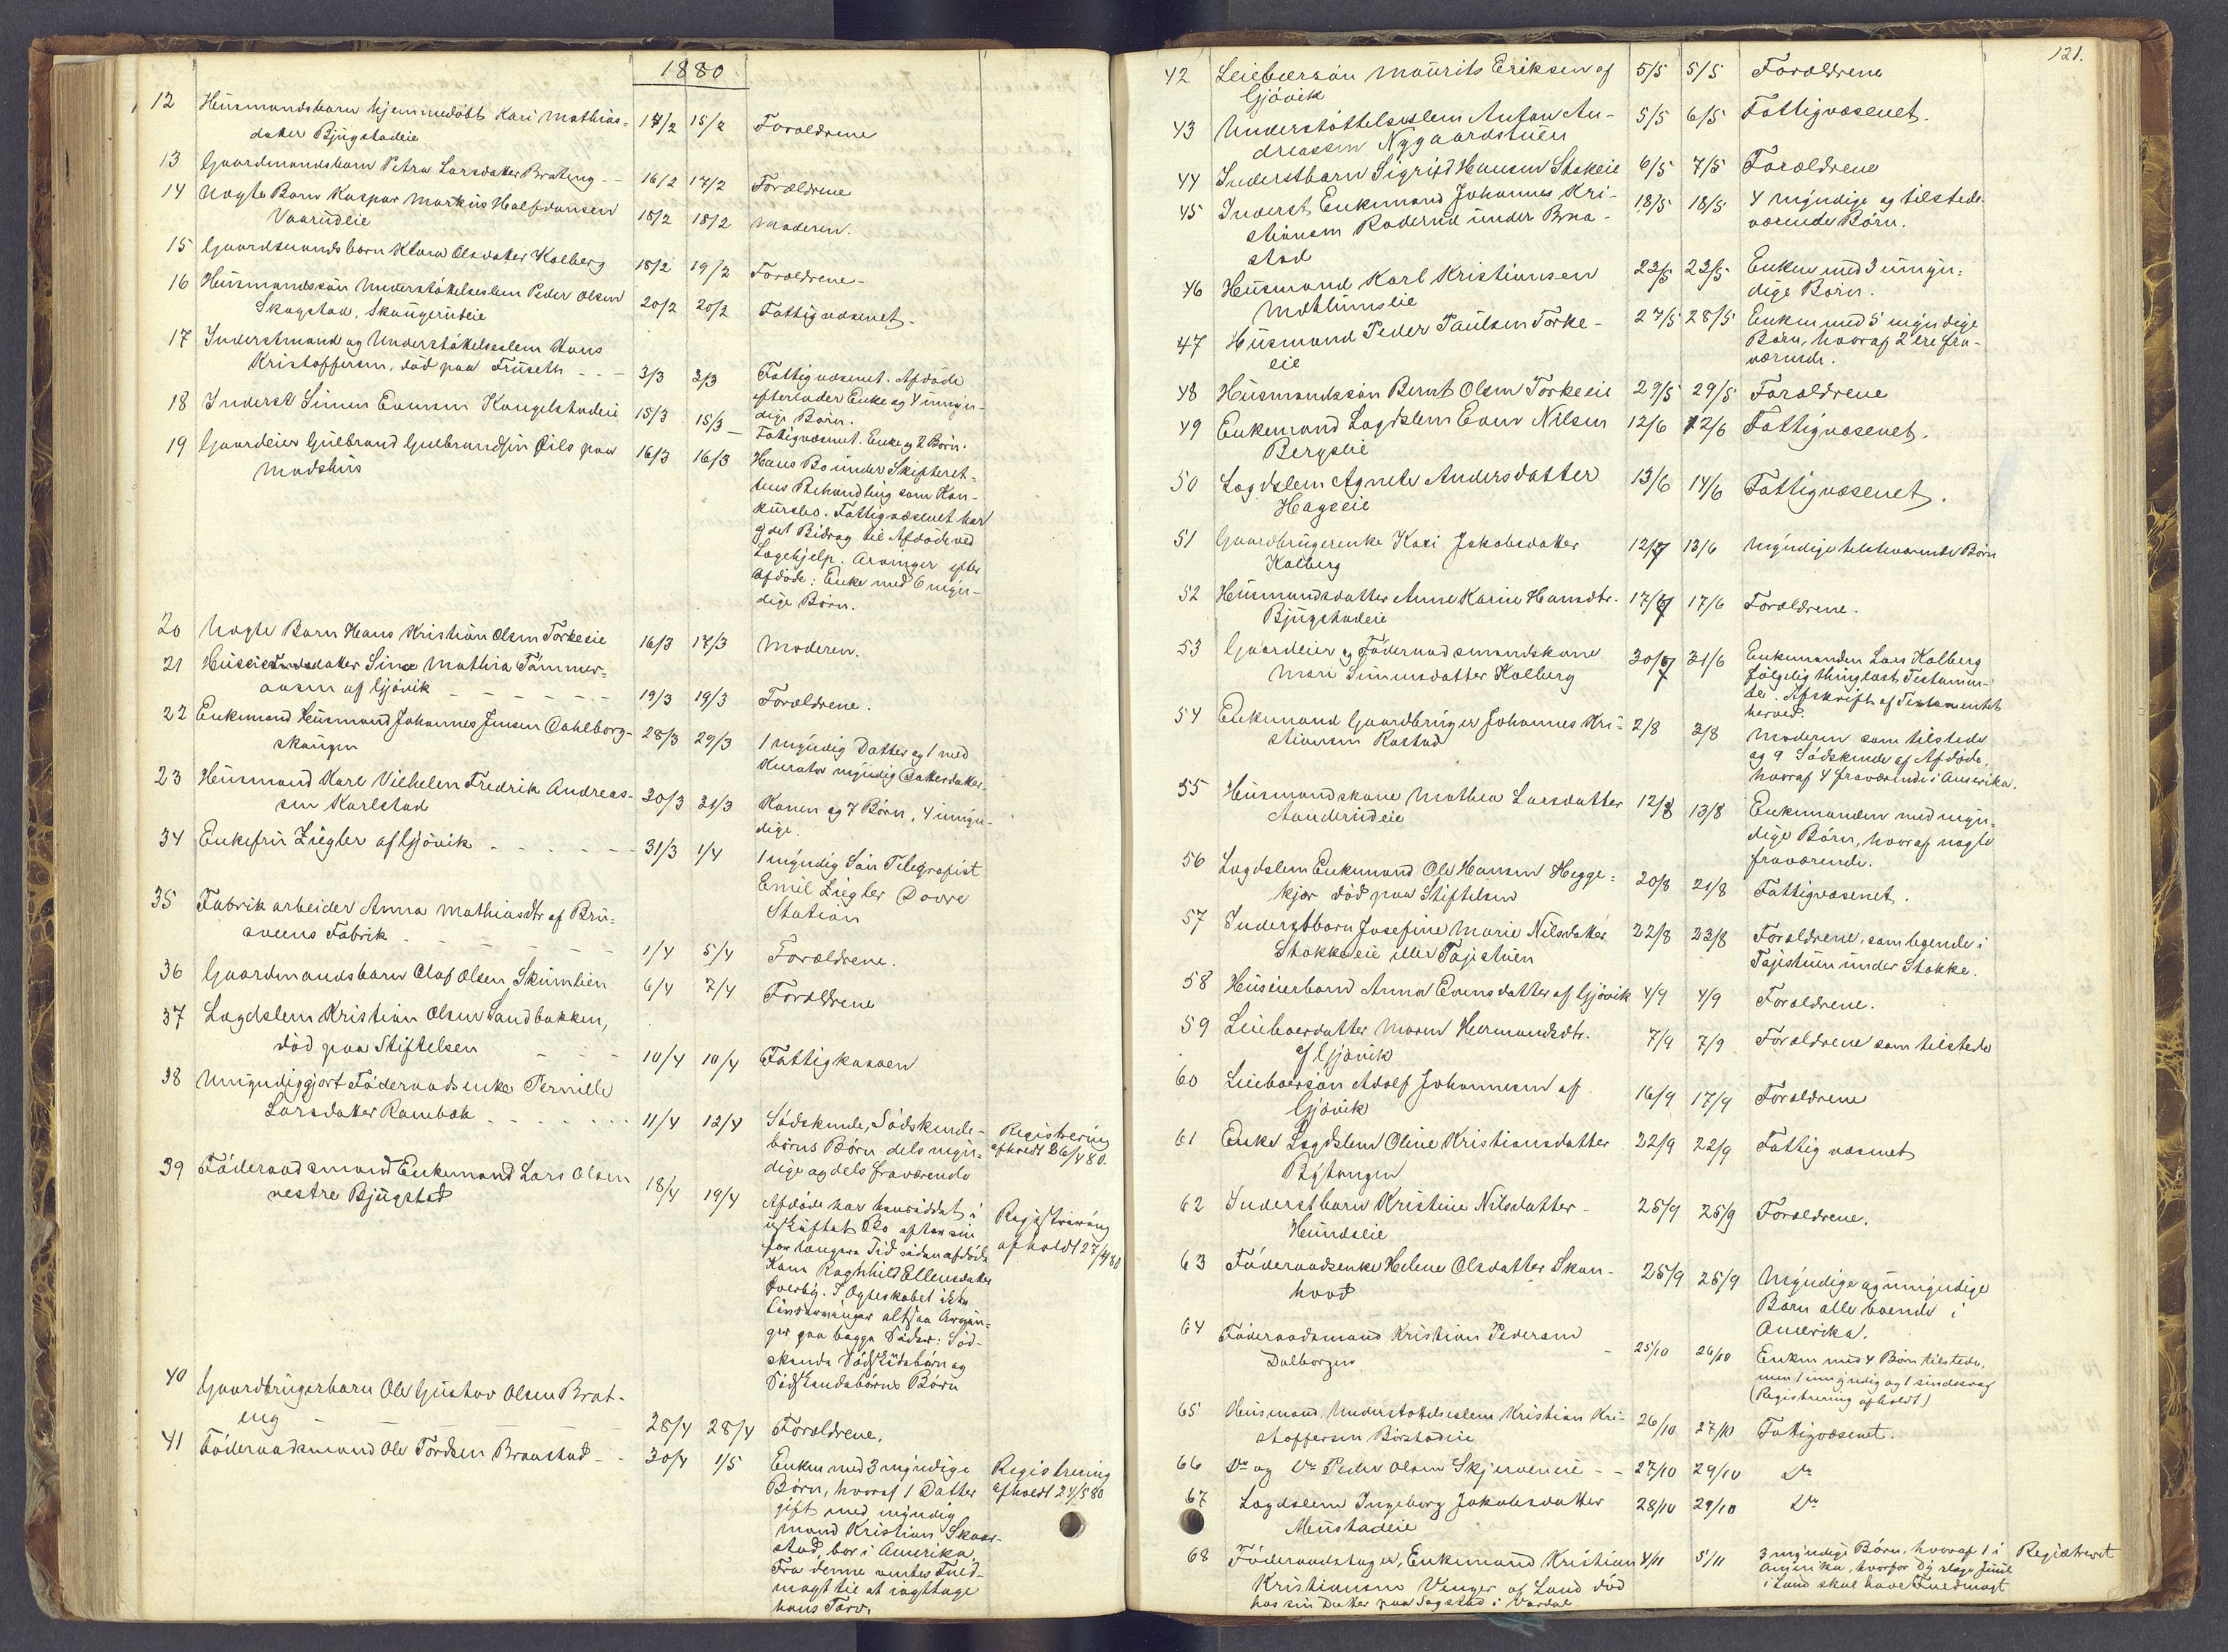 1880
12 Husmandsbarn hjemmedöbt Kari Mathias=
datter Bjugstadeie 14/2 15/2 Forældrene
13 Gaardmandsbarn Petra Larsdatter Brateng 16/2 17/2 Forældrene
14 Uægte Barn Kaspar Markus Halfdansen
Vaarudeie 18/2 18/2 Moderen.
15 Gaardmandsbarn Klara Olsdatter Kolberg 18/2 19/2 Forældrene
16 Husmandssön Understöttelseslem Peder Olsen
Skagstad, Skaugerudeie 20/2 20/2 Fattigvæsenet.
17 Inderstmand og Understöttelseslem Hans
Kristoffersen, död paa Fruseth 3/3 3/3 Fattigvæsenet. Afdöde
efterlader Enke og 4 umyn-
dige Börn.
18 Inderst Simen Evensen Kongelstadeie 15/3 15/3 Fattigvæsenet. Enke og 2 Börn.
19 Gaardeier Gulbrand Gulbrandsen Eils paa
Madshus 16/3 16/3 Hans Bo under Skifteret-
tens Behandling som Kon-
kursbo. Fattigvæsenet har
ydet Bidrag til Afdöde ved
Lægehjelp. Arvinger efter
Afdöde: Enke med 6 myn-
dige Börn.
20 Uægte Barn Hans Kristian Olsen Torkeeie 16/3 17/3 Moderen.
21 Huseiersdatter Sina Mathia Tömmer=
aasen af Gjövik 19/3 19/3 Forældrene.
22 Enkemand Husmand Johannes Jensen Dahlborg-
skaugen 28/3 29/3 1 myndig Datter og 1 med
Kurator myndig Datterdatter.
23 Husmand Karl Vilhelm Fredrik Andreas-
sen Karlstad 30/3 31/3 Konen og 7 Börn, 4 umyn-
dige.
34 Enkefru Ziegler af Gjövik 31/3 1/4 1 myndig Sön Telegrafist
Emil Ziegler Dovre
Station
35 Fabrikarbeider Anna Mathiasdtr af Bru-
sveens Fabrik 1/4 5/4 Forældrene.
36 Gaardmandsbarn Olaf Olsen Skumlien 6/4 7/4 Forældrene
37 Lægdslem Kristian Olsen Sandbakken,
död paa Stiftelsen 10/4 10/4 Fattigkassen
38 Umyndiggjort Föderaadsenke Pernille
Larsdatter Rambæk 11/4 12/4 Södskende, Södskende-
börns Börn dels myn=
dige og dels fraværende
Registrering
afholdt 26/4 80.
39 Föderaadsmand Enkemand Lars Olsen
vestre Bjugstad 18/4 19/4 Afdöde har hensiddet i
uskiftet Bo efter sin
for længere Tid siden afdöde
Kone Ragnhild Ellensdatter
Överby. I Ægteskabet ikke
Livsarvinger altsaa Arvin=
ger paa begge Sider: Söd-
skende Södskendebörn og
Södskendebörns Börn
Registrering
afholdt 27/4 80
40 Gaardbrugerbarn Ole Gustav Olsen Brat-
eng 28/4 28/4 Forældrene.
41 Föderaadsmand Ole Tordsen Braastad 30/4 1/5 Enken med 3 myndige
Börn, hvoraf 1 Datter
gift med myndig
mand Kristian Skaar-
stad, bor i Amerika.
Fra denne ventes Fuld-
magt til at iagttage
hans Tarv.
Registrering
afholdt 24/5 80
121.
42 Leieboersön Maurits Eriksen af
Gjövik 5/5 5/5 Forældrene
43 Understöttelseslem Anton An-
dreassen Nygaardstuen 5/5 6/5 Fattigvæsenet.
44 Inderstbarn Sigrid Hansen Stokeie 6/5 7/5 Forældrene
45 Inderst Enkemand Johannes Kri-
stiansen Roderud under Braa-
stad 18/5 18/5 4 myndige og tilstede-
værende Börn.
46 Husmand Karl Kristiansen
Mæhlumseie 23/5 23/5 Enken med 3 umyn=
dige Börn.
47 Husmand Peder Paulsen Torke-
eie 27/5 28/5 Enken med 5 myndige
Börn, hvoraf 2 ere fra-
værende.
48 Husmandssön Bernt Olsen Torkeeie 29/5 29/5 Forældrene
49 Enkemand Lægdslem Even Nilsen
Bergseie 12/6 12/6 Fattigvæsenet.
50 Lægdslem Agnete Andersdatter
Hageeie 13/6 14/6 Fattigvæsenet.
51 Gaardbrugerenke Kari Jakobsdatter
Kolberg 12/7 13/6 Myndige tilstedeværende Börn
52 Husmandsdatter Anne Karine Hansdtr.
Bjugstadeie 17/7 17/6 Forældrene.
53 Gaardeier og Föderaadsmandskone
Mari Simensdatter Kolberg 30/7 31/6 Enkemanden Lars Kolberg
ifölge thinglæst Testamen-
te. Afskrift af Testamentet
herved.
54 Enkemand Gaardbruger Johannes Kri-
stiansen Rostad 2/8 3/8 Moderen som tilstede
og 9 Södskende af Afdöde,
hvoraf 4 fraværende i Amerika.
55 Husmandskone Mathea Larsdatter
Aanderudeie 12/8 13/8 Enkemanden med myn=
dige Börn, hvoraf nogle
fraværende.
56 Lægdslem Enkemand Ole Hansen Hegge=
kjær död paa Stiftelsen 20/8 21/8 Fattigvæsenet.
57 Inderstbarn Josefine Marie Nilsdatter
Stokkeeie eller Tajestuen 22/8 23/8 Forældrene, som logende i
Tajestuen under Stokke.
58 Huseierbarn Anna Evensdatter af Gjövik 4/9 4/9 Forældrene.
59 Leieboerdatter Maren Hermandsdtr.
af Gjövik 7/9 7/9 Forældrene som tilstede
60 Leieboersön Adolf Johannesen af
Gjövik 16/9 17/9 Forældrene
61 Enke Lægdslem Oline Kristiansdatter
22/9 22/9 Fattigvæsenet
62 Inderstbarn Kristine Nilsdatter
Hundseie 25/9 25/9 Forældrene.
63 Föderaadsenke Helene Olsdatter Skon-
hovd 25/9 25/9 Myndige og umyndige
Börn alle boende i
Amerika.
64 Föderaadsmand Kristian Pedersen
Dalborgen 25/10 26/10 Enken med 4 Börn tilstede,
men 1 umyndig og 1 sindssvag
(Registrering afholdt)
65 Husmand, Understöttelseslem Kristian Kri-
stoffersen Börstadeie 26/10 27/10 Fattigvæsenet.
66 Do og Do Peder Olsen Skjervereie 27/10 29/10 Do
67 Lægdslem Ingeborg Jakobsdatter
Mustadeie 28/10 29/10 Do
68 Föderaadstager, Enkemand Kristian
Kristiansen Venger af Land död
hos sin Datter paa Sogstad i Vardal 4/11 5/11 3 myndige Börn, hvoraf 1 i
Amerika, hvorfor
i Land skal have Fuldmagt
Registreret